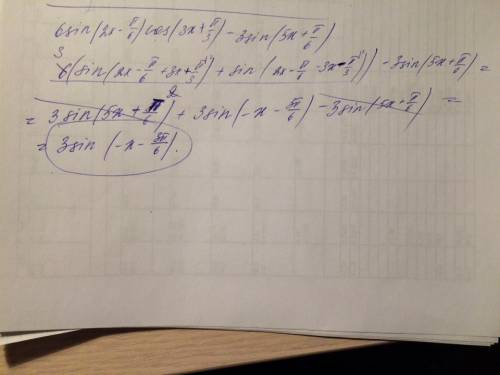 6sin(2x-π/6)cos(3x+π/3)-3sin(5x+π/6)
6(sin(2x-π/6+3x+π/3)+sin(2x-π/6-3x-π/3))-3sin(5x+π/6)=
= 3sin(5x+π/6)+3sin(-x-3π/6)-3sin(5x+π/6) =
= 3sin(-x-3π/6).